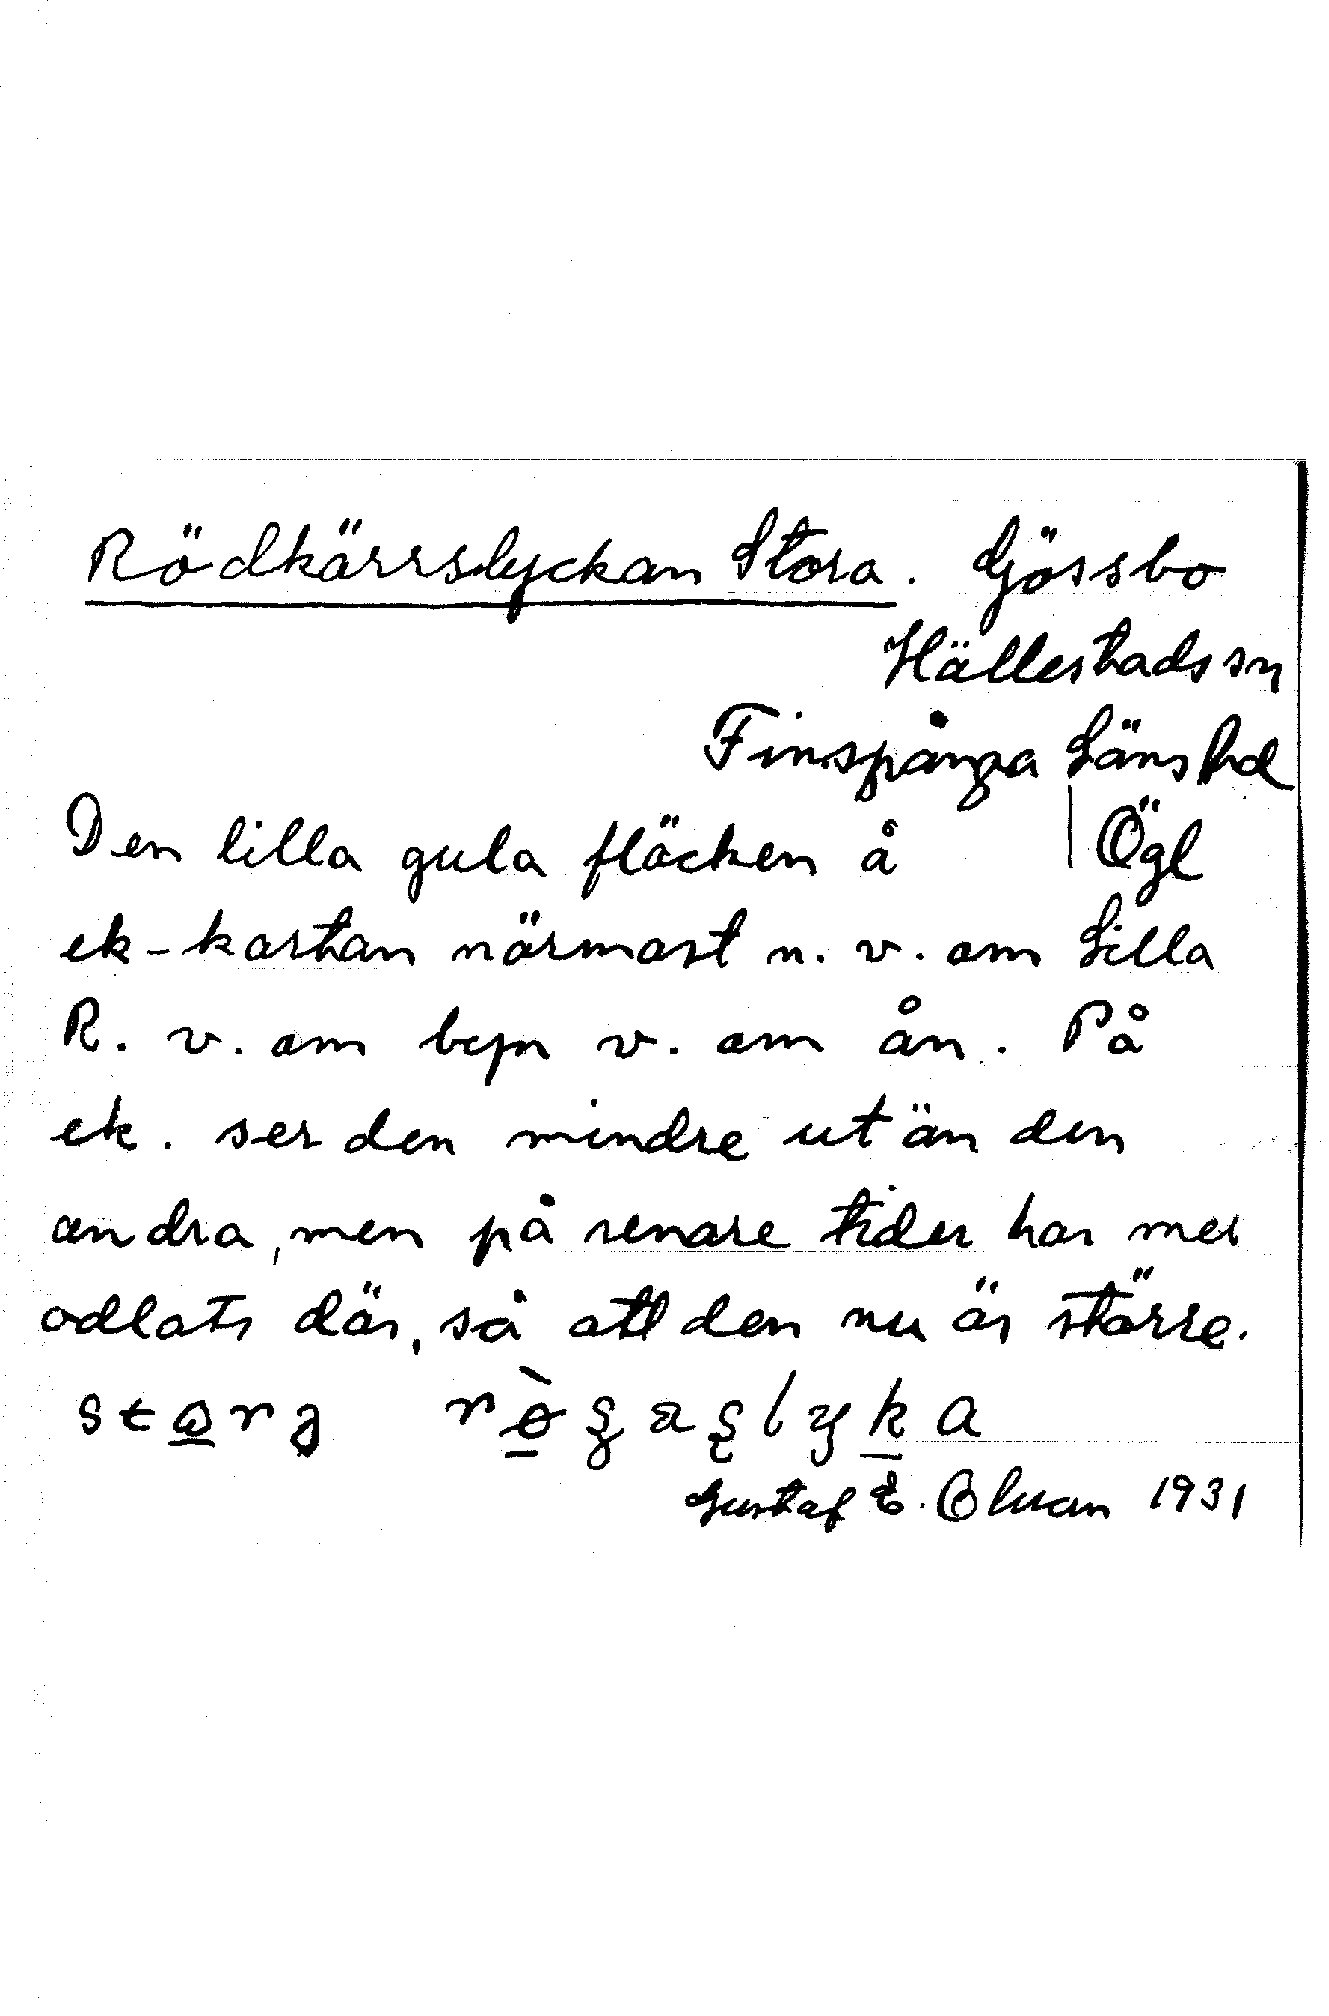 Rödkärrslyckan Stora. Gössbo
Hällestads sn
Finspånga Läns hd
Den lilla gula fläcken å Ögl
ek-kartan närmast n. v. om Lilla
R. v. om byn v. om ån. På
ek. ser den mindre ut än den
andra, men på senare tider har mer
odlats där, så att den nu är större.
Gustaf E. Bluan 1931